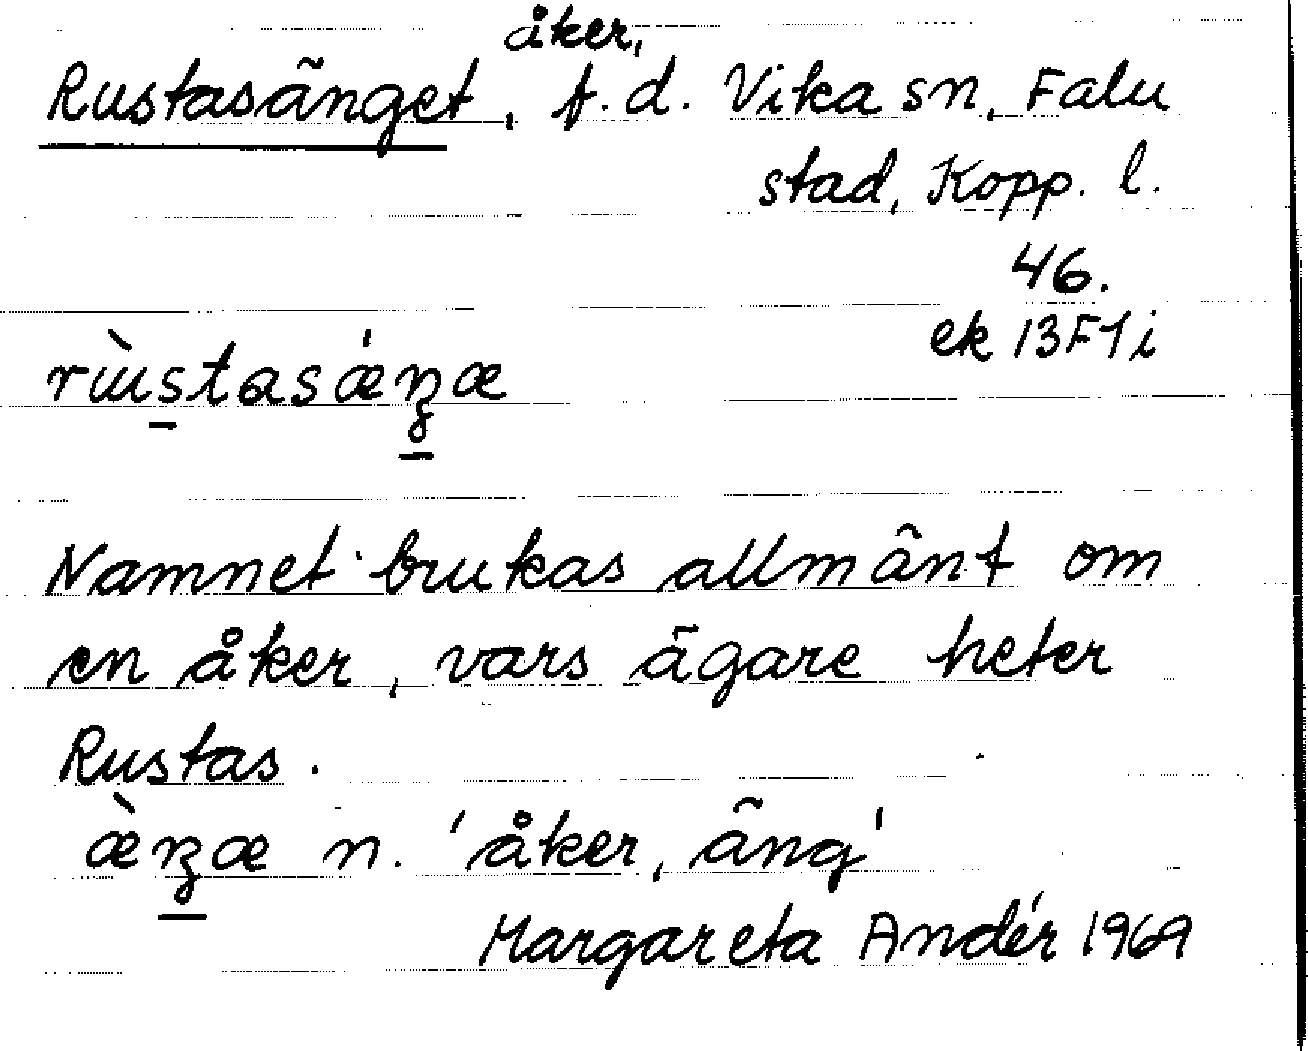 åker,
Rustasänget, f.d. Vika sn, Falu
stad, Kopp. l.
46.
ek 13F1i
rɯ̀s̲tasǽŋ̲æ
Namnet brukas allmänt om
en åker, vars ägare heter
Rustas.
æ̀ŋ̲æ n. 'åker, äng'
Margareta Andér 1969